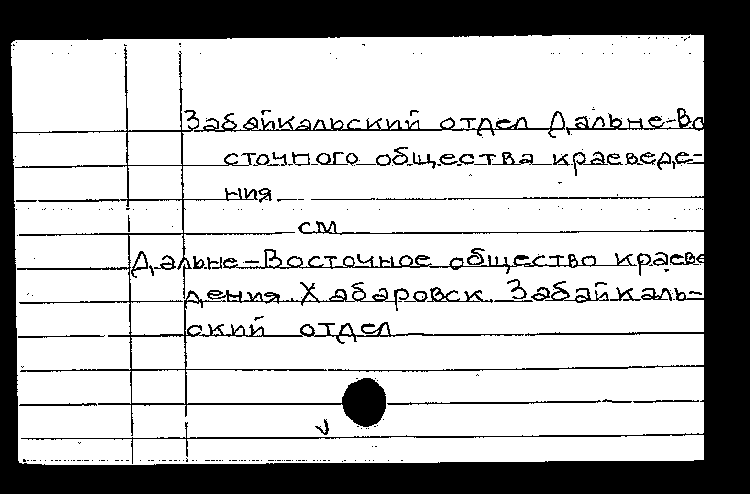 Забайкальский отдел Дальне-Во
сточного общества краеведе-
ния.
см
Дальне-Восточное общество краеве
дения. Хабаровск. Забайкаль-
ский отдел